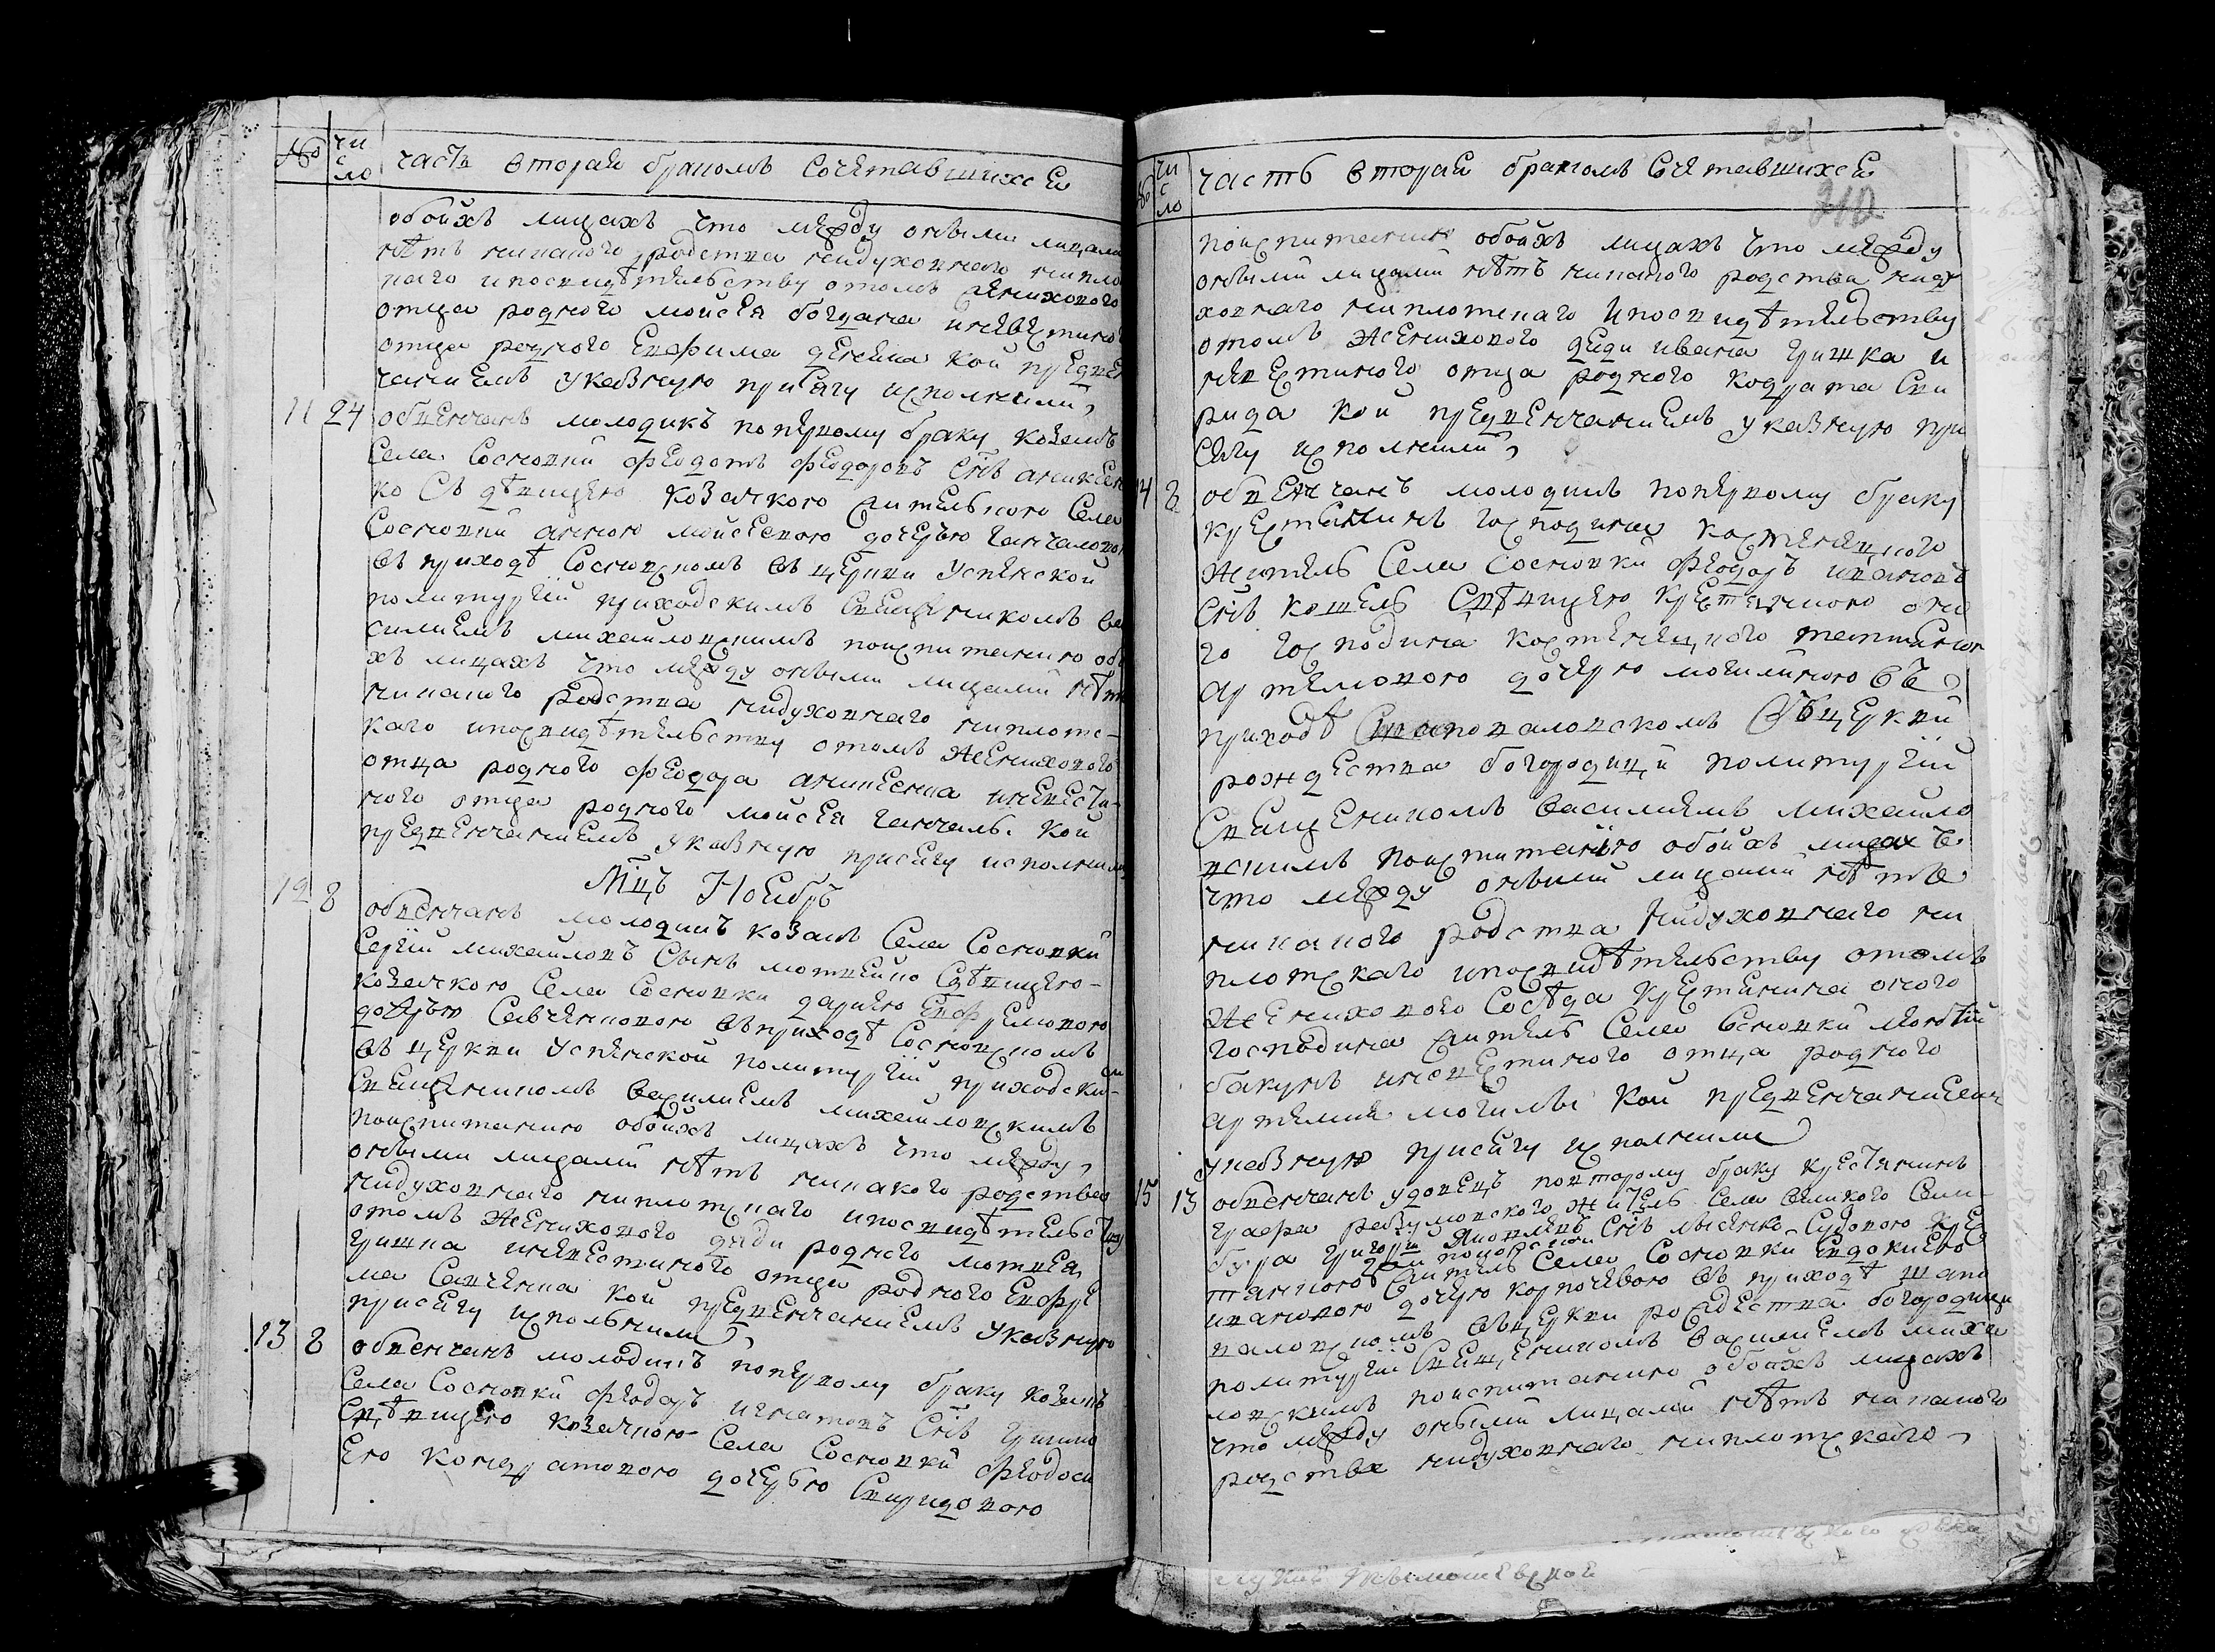 № число часть вторая бракомъ сочетавшихся
обойхъ лицахъ что между оными лицами
нѣтъ никакого родства нидуховнаго нипло
каго ипосвидѣтелству отомъ женихового
отца родного мойсея богдана иневестиного
отца родного Евфима деняна кой предвен
чаниемъ указную присягу исполнили
11 24 обвенчанъ молодикъ попервому браку козакъ
села Соснювки Феодотъ Феодоровъ снъ аникеен
ко съ дѣвицею козачкою жителкою села
Соснювки анною мойсеевою дочерю ганчаловою
въ приходѣ Соснювскомъ въ церкви Успенской
политургїи приходскимъ священикомъ ва
силиемъ михайловскимъ поиспитанию обо
хъ лицахъ что между оными лицами нѣтъ
никакого родства нидуховнаго нипло‐
каго ипосвидѣтелству отомъ женихового
отца родного Феодора аникеенка иневести‐
ного отца родного мойсея ганчаль кой
предвенчаниемъ указную присягу исполнили
Мцъ Ноябръ
12 8 обвенчанъ молодикъ козакъ села Соснювки
Сергїй михайловъ сынъ мотвейко сдѣвицею‐
козачкою села Соснювки дариею Евфремовою
дочерю Савченковою въприходѣ Соснювскомъ
въ церкви Успенской политургїи приходским
священикомъ василиемъ михайловскимъ
поиспитанию обойхъ лицахъ что между
оными лицами нѣтъ никакого родства
нидуховнаго нипло каго ипосвидѣтелству
отомъ женихового дяди родного мотвея
гришка иневестиного отца родного Евфре
ма Савченка кой предвенчаниемъ указную
присягу исполнили
13 8 обвенчанъ молодикъ попервому браку козакъ
села Соснювки Феодоръ игнатовъ снъ гришко
сдѣвицею козачкою села Соснювки Феодоси
ею Кондратовою дочерю Свиридовою
201
210
№ число часть вторая бракомъ сочетавшихся
поиспитанию обойхъ лицахъ что между
оными лицами нѣтъ никакого родства ниду
ховнаго ниплотскаго ипосвидѣтелству
отомъ женихового дяди ивана гришка и
невестиного отца родного Кодрата Сви
рида кой предвенчаниемъ указную при
сягу исполнили
14 8 обвенчанъ молодикъ попервому браку
крестянинъ господина
житель села Соснювки Феодоръ ивановъ
снъ кошель сдѣвицею крестянкою оно
го господина
артемовою дочерю могилиною въ
приходѣ Шаповаловскомъ въцеркви
рождества богородици политургїи
священикомъ василиемъ михайло
вскимъ поиспитанию обойхъ лицахъ
что между оными лицами нѣтъ
никакого родства нидуховнаго ни
плотскаго ипосвидѣтелству отомъ
женихового сосѣда крестянина оного
господина житель села Соснювки
бакунъ иневестиного отца родного
артемия могилы кой предвенчаниемъ
указную присягу исполнили
15 13 обвенчанъ удовецъ повторому браку крестянинъ
графа разумовского житель села великого Сам‐
бура григорїй снъ лисенко судовою кре
стянкою житель села Соснювки Евдокиею
ивановою дочерю корпачевою въ приходѣ шапо
валовскомъ въцеркви рождества богородици
политургїи священикомъ василиемъ михай
ловскимъ поиспитанию обойхъ лицахъ
что между оными лицами нѣтъ никакого
родства нидуховнаго ниплотскаго